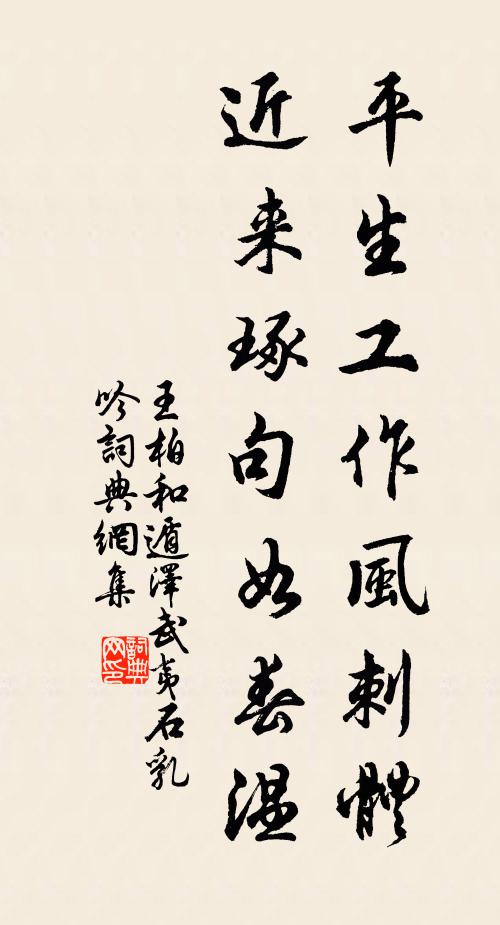 平生工作風刺體
近来琢句如春温
王柏和遁澤武夷石乳
吟詞典網集
詞典網印